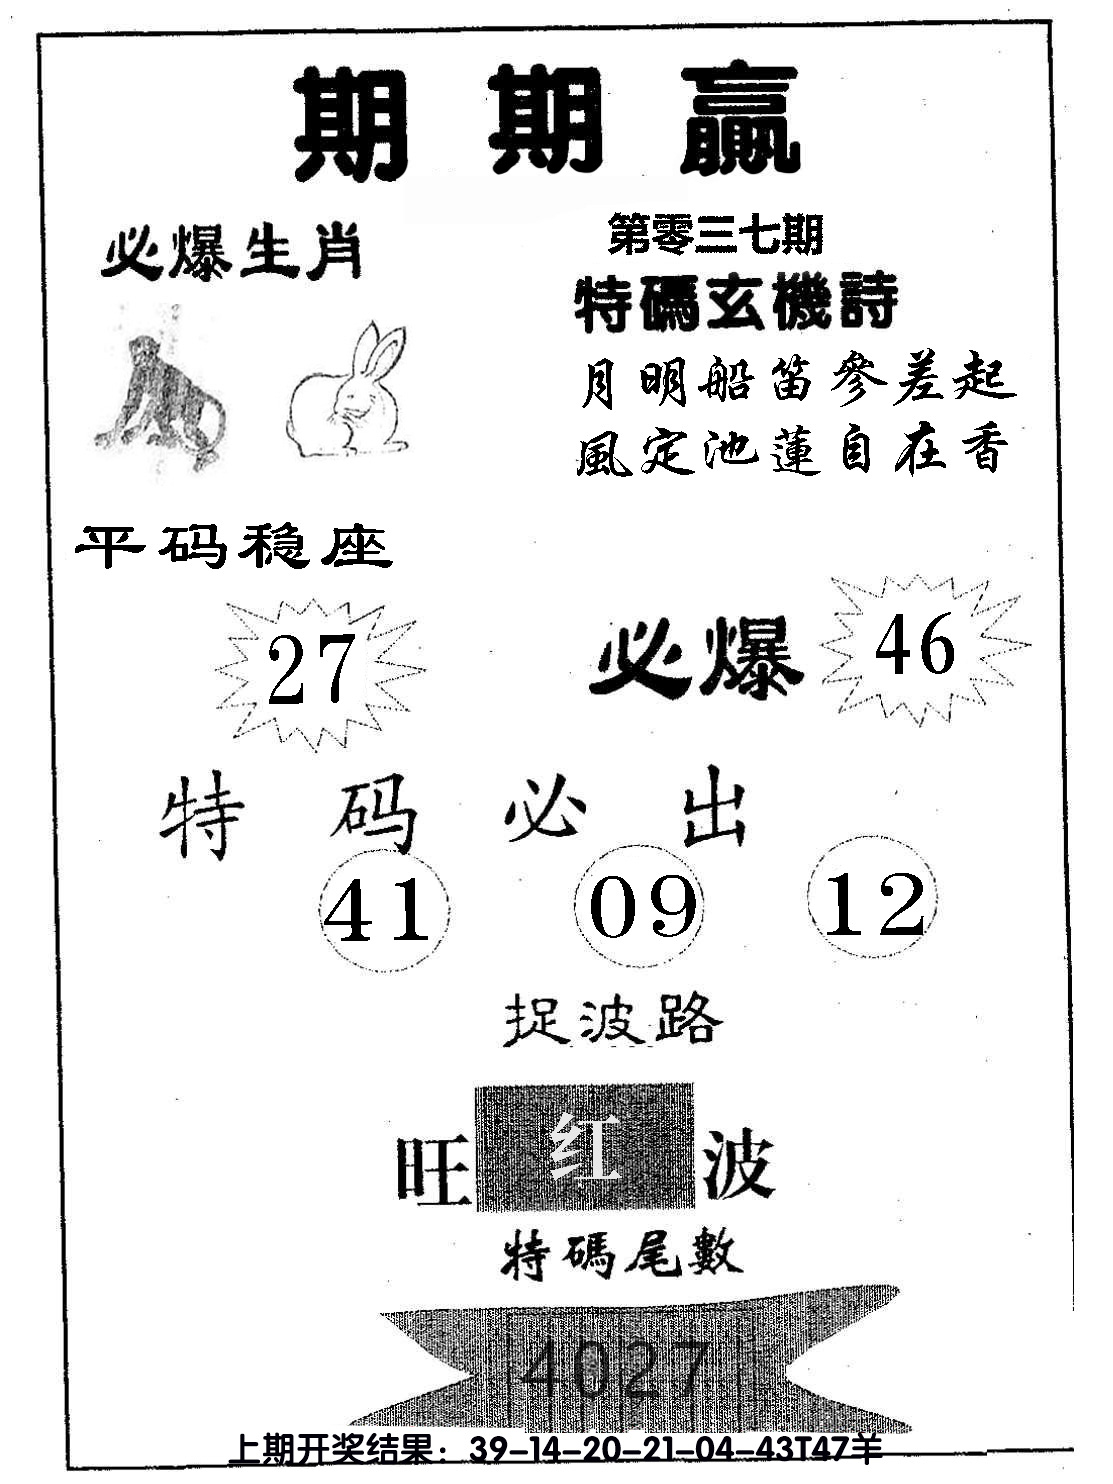 期期赢
必爆生肖
第零三七期
特碼玄機詩
月明船笛參差起
風定池蓮自在香
平码稳座
27
必爆
46
特码必出
41 09 12
捉波路
旺红波
特碼尾數
4027
上期开奖结果：39-14-20-21-04-43T47羊